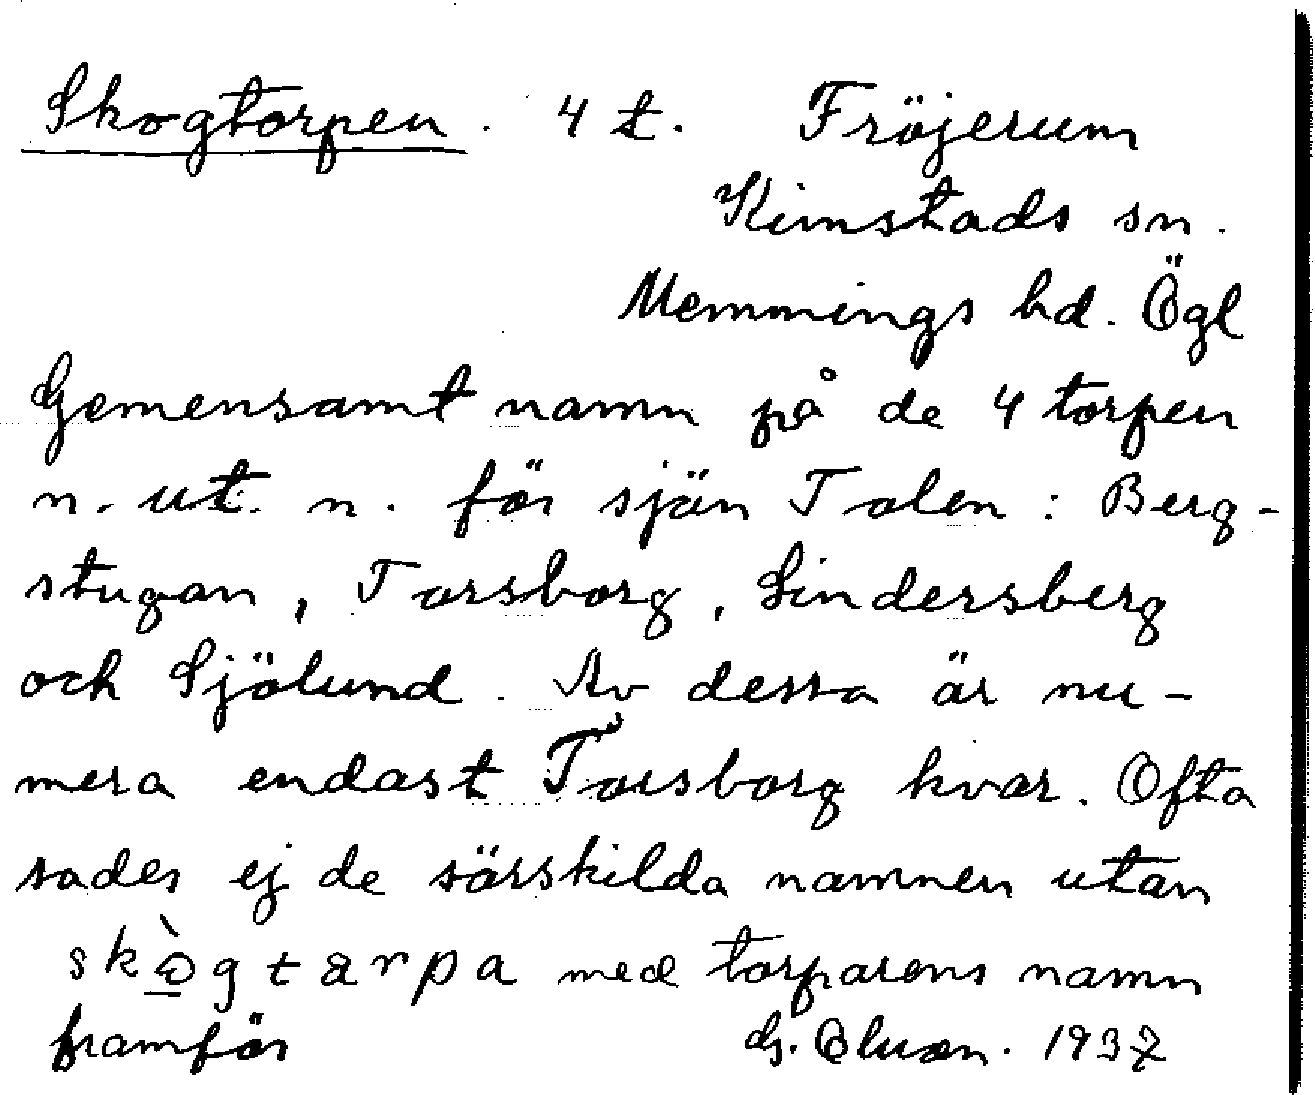 Skogtorpen. 4 t. Fröjerum
Kimstads sn.
Memmings hd. Ögl
Gemensamt namn på de 4 torpen
n. ut. n. för sjön Tolen: Berg-
stugan, Torsborg, Lindersberg
och Sjölund. Av dessa är nu-
mera endast Torsborg kvar. Ofta
sades ej de särskilda namnen utan
med torparens namn
framför G. 1937